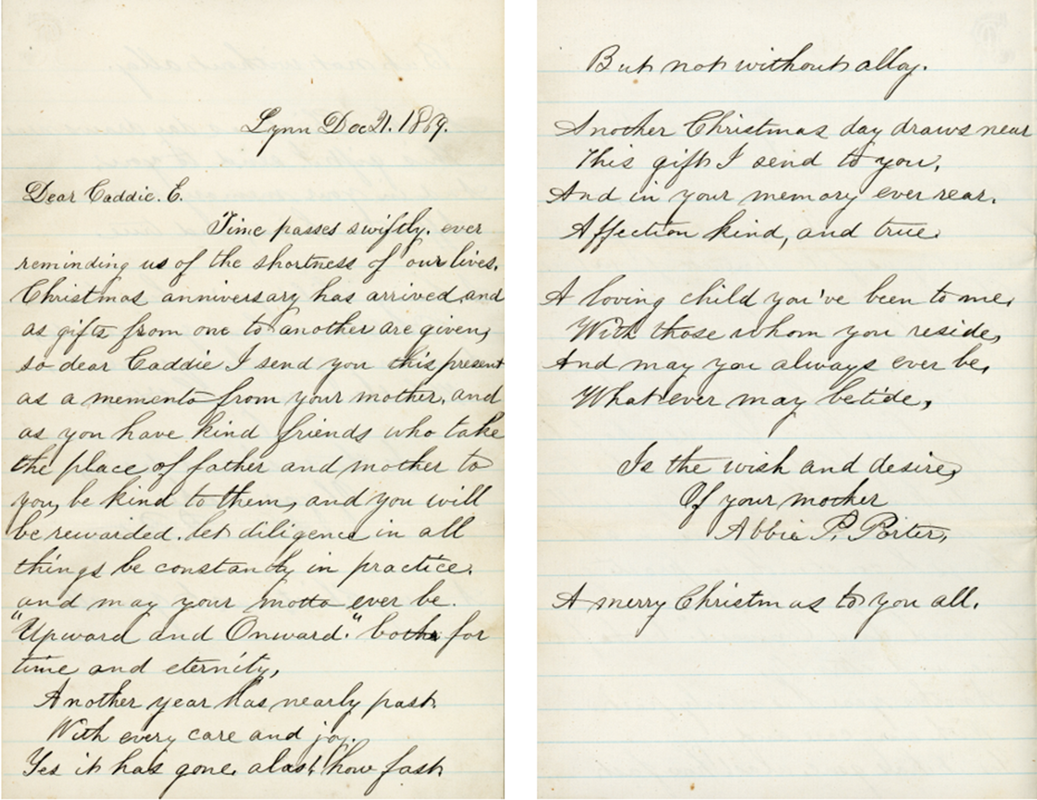 Lynn Dec 21. 1869.
Dear Caddie. E.
Time passes swiftly. ever
reminding us of the shortness of our lives.
Christmas anniversary has arrived and
as gifts from one to another are given,
so dear Caddie I send you this present
as a memento from your mother, and
as you have kind friends who take
the place of father and mother to
you, be kind to them, and you will
be rewarded. let diligence in all
things be constantly in practice.
and may your motto ever be.
"Upward and Onward." both for
time and eternity,
Another year has nearly past
With every care and joy.
Yes it has gone. alas! how fast
But not without alloy.
Another Christmas day draws near
This gift I send to you,
And in your memory ever rear.
Affection kind, and true.
A loving child you've been to me,
With those whom you reside,
And may you always ever be,
Whatever may betide,
Is the wish and desire,
Of your mother
Abbie P. Porter,
A merry Christmas to you all.